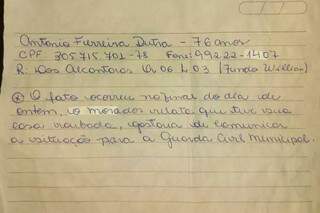 Antonio Ferreira Dutra - 76 anos
CPF 305 715.701-78 Fone: 99222-1407
R. Dos Alcantaras Q. 06 L. 03 (Fundo Willian)
O fato ocorreu no final do dia de
ontem, o morador relata que teve sua
casa roubada, gostaria de comunicar
a situação para a Guarda Civil Municipal.